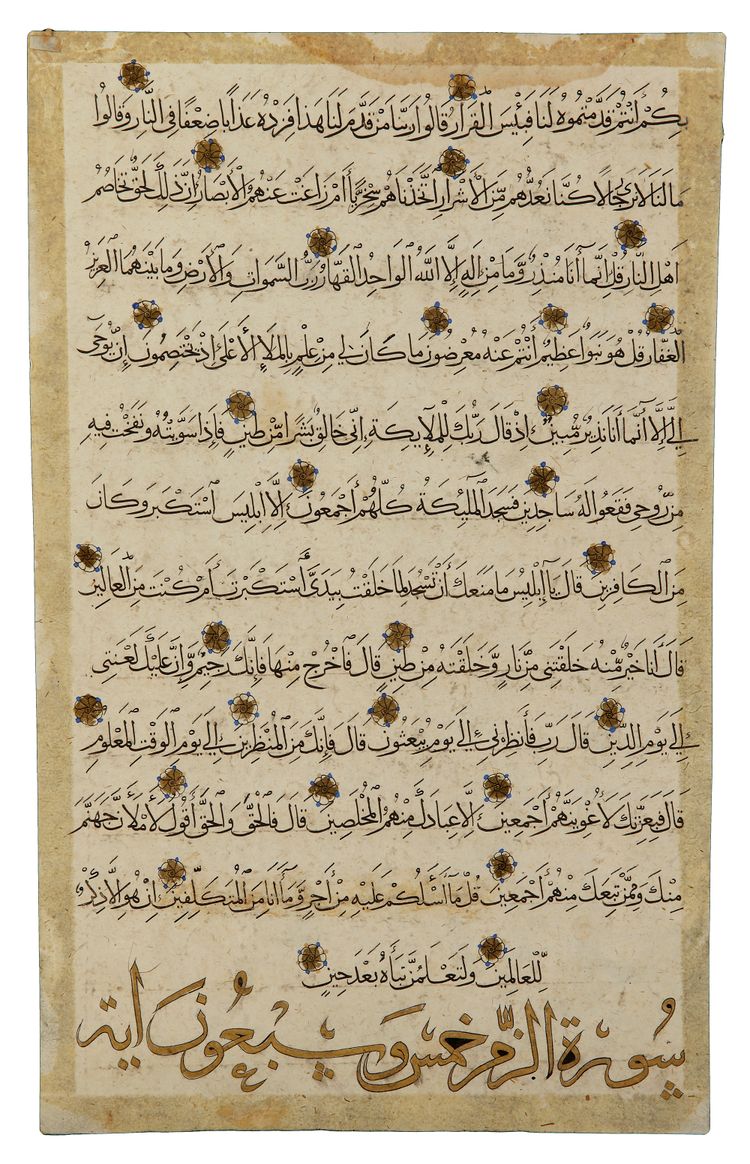 بِكُمْ أَنْتُمْ قَدَّمْتُمُوهُ لَنَا فَبِئْسَ الْقَرَارُ قَالُوا رَبَّنَا مَنْ قَدَّمَ لَنَا هَذَا فَزِدْهُ عَذَابًا ضِعْفًا فِي النَّارِ وَقَالُوا
مَا لَنَا لَا نَرَى رِجَالًا كُنَّا نَعُدُّهُمْ مِنَ الْأَشْرَارِ أَتَّخَذْنَاهُمْ سِخْرِيًّا أَمْ زَاغَتْ عَنْهُمُ الْأَبْصَارُ إِنَّ ذَلِكَ لَحَقٌّ تَخَاصُمُ
أَهْلِ النَّارِ قُلْ إِنَّمَا أَنَا مُنْذِرٌ وَمَا مِنْ إِلَهٍ إِلَّا اللَّهُ الْوَاحِدُ الْقَهَّارُ رَبُّ السَّمَوَاتِ وَالْأَرْضِ وَمَا بَيْنَهُمَا الْعَزِيزُ
الْغَفَّارُ قُلْ هُوَ نَبَؤٌا عَظِيمٌ أَنْتُمْ عَنْهُ مُعْرِضُونَ مَا كَانَ لِي مِنْ عِلْمٍ بِالْمَلَإِ الْأَعْلَى إِذْ يَخْتَصِمُونَ إِنْ يُوحَى
إِلَيَّ إِلَّا أَنَّمَا أَنَا نَذِيرٌ مُبِينٌ إِذْ قَالَ رَبُّكَ لِلْمَلَائِكَةِ إِنِّي خَالِقٌ بَشَرًا مِنْ طِينٍ فَإِذَا سَوَّيْتُهُ وَنَفَخْتُ فِيهِ
مِنْ رُوحِي فَقَعُوا لَهُ سَاجِدِينَ فَسَجَدَ الْمَلَئِكَةُ كُلُّهُمْ أَجْمَعُونَ إِلَّا إِبْلِيسَ اسْتَكْبَرَ وَكَانَ
مِنَ الْكَافِرِينَ قَالَ يَا إِبْلِيسُ مَا مَنَعَكَ أَنْ تَسْجُدَ لِمَا خَلَقْتُ بِيَدَيَّ أَسْتَكْبَرْتَ أَمْ كُنْتَ مِنَ الْعَالِينَ
قَالَ أَنَا خَيْرٌ مِنْهُ خَلَقْتَنِي مِنْ نَارٍ وَخَلَقْتَهُ مِنْ طِينٍ قَالَ فَاخْرُجْ مِنْهَا فَإِنَّكَ رَجِيمٌ وَإِنَّ عَلَيْكَ لَعْنَتِي
إِلَى يَوْمِ الدِّينِ قَالَ رَبِّ فَأَنْظِرْنِي إِلَى يَوْمِ يُبْعَثُونَ قَالَ فَإِنَّكَ مِنَ الْمُنْظَرِينَ إِلَى يَوْمِ الْوَقْتِ الْمَعْلُومِ
قَالَ فَبِعِزَّتِكَ لَأُغْوِيَنَّهُمْ أَجْمَعِينَ إِلَّا عِبَادَكَ مِنْهُمُ الْمُخْلَصِينَ قَالَ فَالْحَقُّ وَالْحَقَّ أَقُولُ لَأَمْلَأَنَّ جَهَنَّمَ
مِنْكَ وَمِمَّنْ تَبِعَكَ مِنْهُمْ أَجْمَعِينَ قُلْ مَا أَسْأَلُكُمْ عَلَيْهِ مِنْ أَجْرٍ وَمَا أَنَا مِنَ الْمُتَكَلِّفِينَ إِنْ هُوَ إِلَّا ذِكْرٌ
لِلْعَالَمِينَ وَلَتَعْلَمُنَّ نَبَأَهُ بَعْدَ حِينٍ
سُورَة الزُّمَر خَمْس وَسَبْعُونَ آيَة